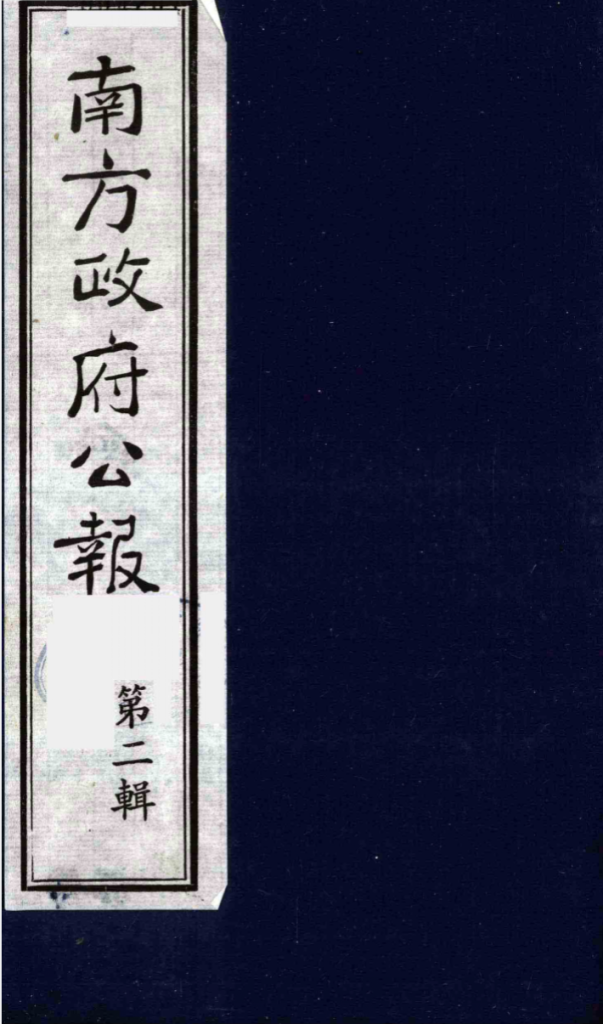 南方政府公報
第二輯